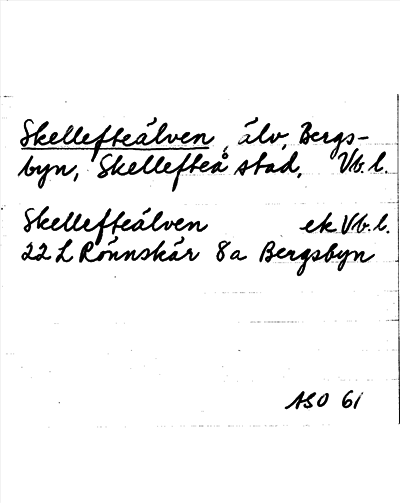 Skellefteälven, älv, Bergs-
byn, Skellefteå stad, Vb. l.
Skellefteälven ek Vb. l.
22 L Rönnskär 8a Bergsbyn
ASO 61